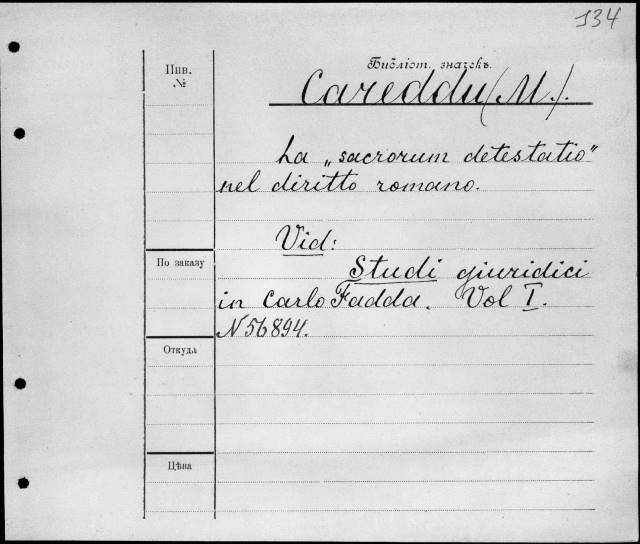 134
Инв.
№
Библіот. значекъ.
Careddu (M.).
La „sacrorum detestatio"
nel diritto romano.
Vid:
По заказу
Studi giuridici
in Carlo Fadda. Vol I.
N 56894.
Откуда
Цѣна